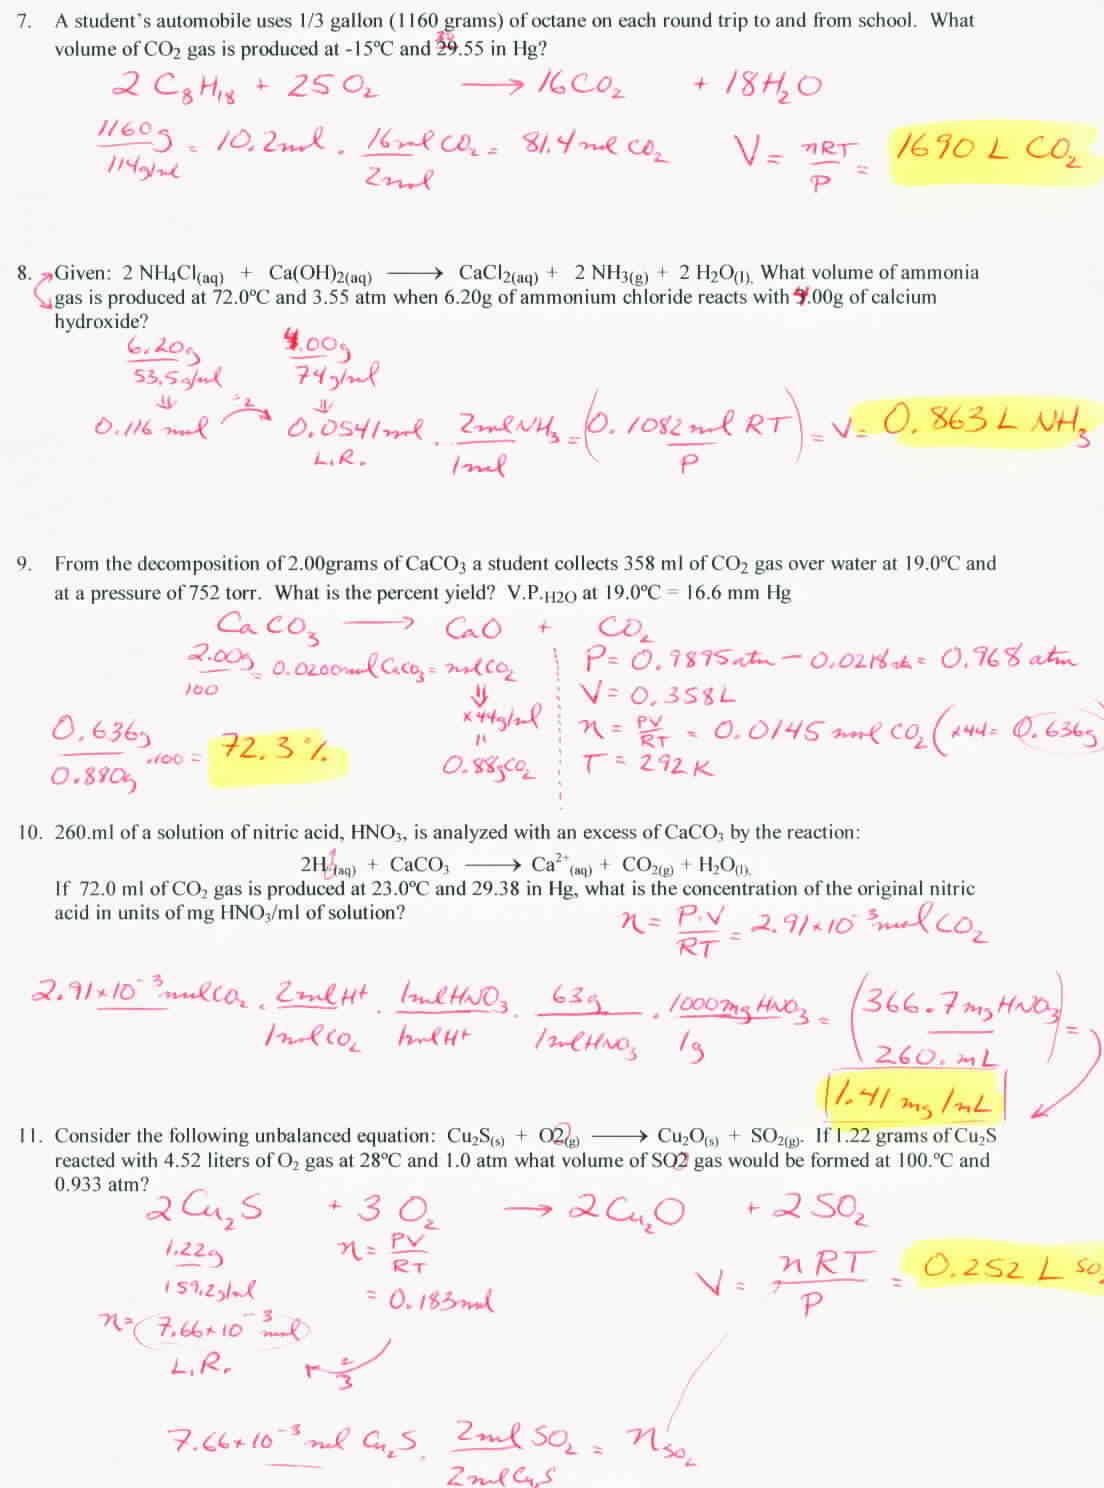 7. A student's automobile uses 1/3 gallon (1160 grams) of octane on each round trip to and from school. What
volume of CO₂ gas is produced at -15ºC and 29.55 in Hg?
2 C₈H₁₈ + 25 O₂ ⟶ 16CO₂ + 18H₂O
1160g / 114g/mol = 10.2mol · 16mol CO₂ / 2mol = 81.4 mol CO₂ V = nRT / P = 1690 L CO₂
8. Given: 2 NH₄Cl(aq) + Ca(OH)₂(aq) ⟶ CaCl₂(aq) + 2 NH₃(g) + 2 H₂O(l). What volume of ammonia
gas is produced at 72.0ºC and 3.55 atm when 6.20g of ammonium chloride reacts with 4.00g of calcium
hydroxide?
6.20g / 53.5g/mol 4.00g / 74g/mol
⇓ ⇓
0.116 mol ÷2 0.0541mol · 2mol NH₃ / 1mol = (0.1082 mol RT / P) = V = 0.863 L NH₃
L.R.
9. From the decomposition of 2.00grams of CaCO₃ a student collects 358 ml of CO₂ gas over water at 19.0ºC and
at a pressure of 752 torr. What is the percent yield? V.P.H2O at 19.0ºC = 16.6 mm Hg
CaCO₃ ⟶ CaO + CO₂
2.00g / 100 = 0.0200mol CaCO₃ = mol CO₂ P = 0.9895atm - 0.0218atm = 0.968 atm
⇓ V = 0.358L
×44g/mol n = PV / RT = 0.0145 mol CO₂ (×44= 0.636g
0.636g / 0.880g ·100 = 72.3% = 0.88gCO₂ T = 292K
10. 260.ml of a solution of nitric acid, HNO₃, is analyzed with an excess of CaCO₃ by the reaction:
2H⁺(aq) + CaCO₃ ⟶ Ca²⁺(aq) + CO₂(g) + H₂O(l).
If 72.0 ml of CO₂ gas is produced at 23.0ºC and 29.38 in Hg, what is the concentration of the original nitric
acid in units of mg HNO₃/ml of solution?
n = P.V / RT = 2.91×10⁻³ mol CO₂
2.91×10⁻³ mol CO₂ · 2mol H⁺ / 1mol CO₂ · 1mol HNO₃ / 1mol H⁺ · 63g / 1mol HNO₃ · 1000mg HNO₃ / 1g = (366.7 mg HNO₃ / 260. mL) =
1.41 mg/mL
11. Consider the following unbalanced equation: Cu₂S(s) + O2(g) ⟶ Cu₂O(s) + SO₂(g). If 1.22 grams of Cu₂S
reacted with 4.52 liters of O₂ gas at 28ºC and 1.0 atm what volume of SO2 gas would be formed at 100.ºC and
0.933 atm?
2Cu₂S + 3 O₂ ⟶ 2Cu₂O + 2 SO₂
1.22g / 159.2g/mol n = PV / RT V = nRT / P = 0.252 L SO₂
= 0.183mol
n= 7.66×10⁻³ mol
L.R. × 2/3
7.66×10⁻³ mol Cu₂S · 2mol SO₂ / 2mol Cu₂S = nSO₂